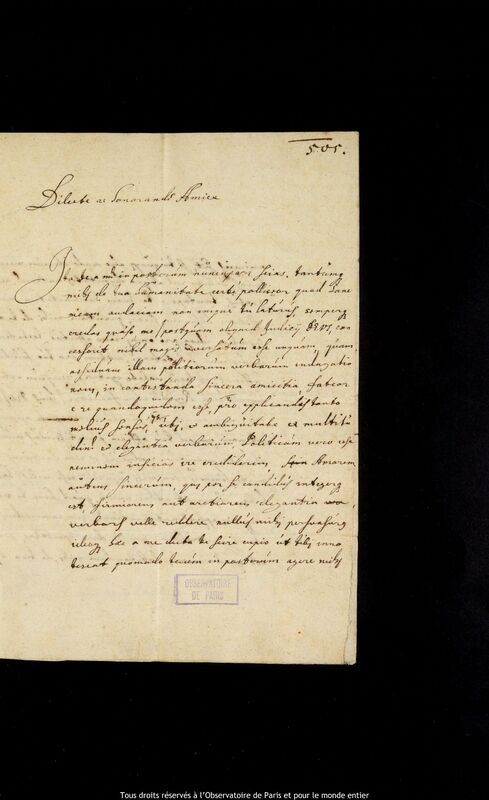 505.
Dilecte ac honorande Amice
in posterum scias, tantumq
mihi de tua humanitate certe polliceor quod hanc
meam audaciam non aegre tu laturus, semperq
credas quaeso me postquam aliquid Judicij DEUS con
cesserit nihil magis esse unquam, quam
assiduam illam politiorum verborum indagatio
nem, in contestanda sincera amicitia, fateor
e re quandoquidem esse, pro explicandis tanto
melius sensis, uti, ex ambiguitate et multitu
dine et elegantia verborum Politicum vero esse
neminem inficias ire crediderim, Amorem
autem sincerum, qui per se candidus integerq
est, firmiorem arctioremq elegantia
verbis velle reddere nullus mihi persuaserit
ideoq haec a me dicta te scire cupio ut tibi inno
tescat quomodo tecum in posterum agere mihi
OBSERVATOIRE
DE PARIS
Tous droits réservés à l'Observatoire de Paris et pour le monde entier